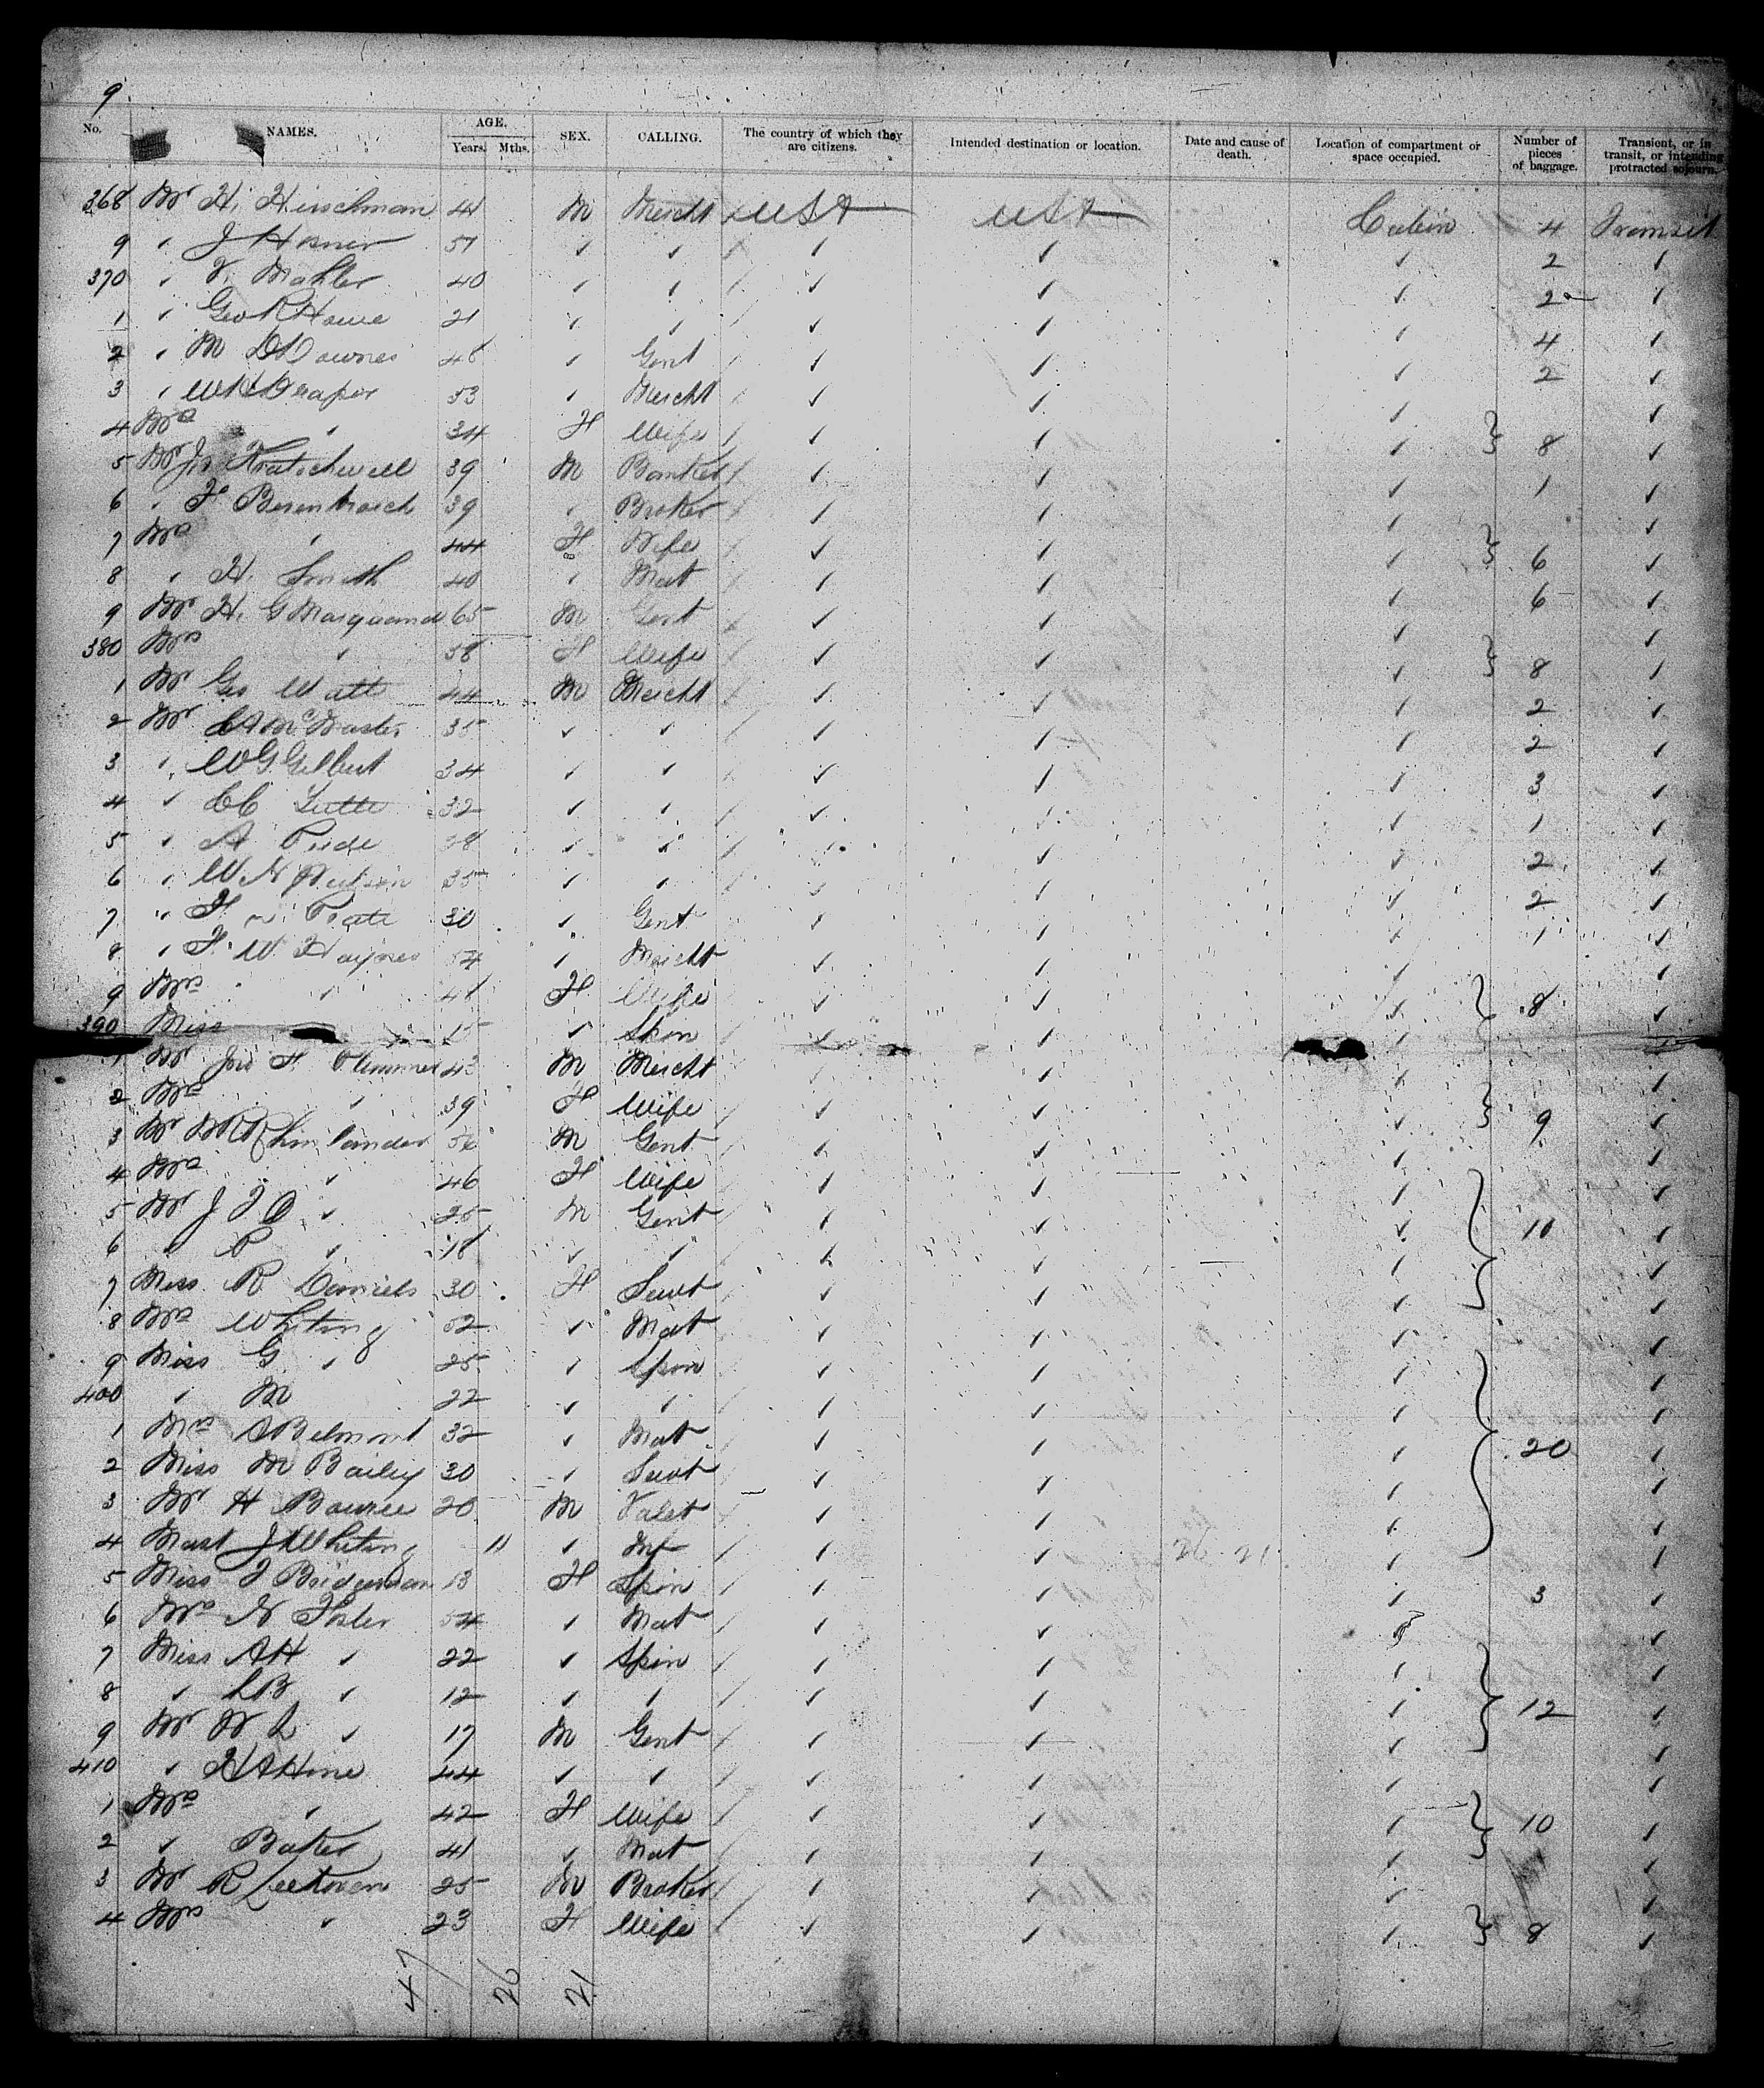 9
No. NAMES. AGE. Years. Mths. SEX. CALLING. The country of which they are citizens. Intended destination or location. Date and cause of death. Location of compartment or space occupied. Number of pieces of baggage. Transient, or in transit, or intending protracted sojourn.
368 Mr H. Hirschman 41 M Mercht USA USA Cabin 4 Transit
9 " J 51 " " " " " 2 "
370 " Mahler 40 " " " " " 2 "
1 " Geo R Howe 21 " " " " " 4 "
2 " M Downes 48 " Gent " " " 2 "
3 " W Draper 53 " Mercht " " " "
4 Mrs " 34 F Wife " " " 8 "
5 Mr Jos 39 M Banker " " " 1 "
6 " F 39 " Broker " " " "
7 Mrs " 44 F Wife " " " 6 "
8 " H. Smith 40 " Mat " " " 6 "
9 Mr H. G Marquand 65 M Gent " " " "
380 Mrs " 58 F Wife " " " 8 "
1 Mr Geo Watt 44 M Mercht " " " 2 "
2 Mr McMaster 35 " " " " " 2 "
3 " W G Gilbert 34 " " " " " 3 "
4 " 32 " " " " " 1 "
5 " A Pride " " " " " 2 "
6 " W 35 " " " " " 2 "
7 " F Pratt 30 " Gent " " " 1 "
8 " F. W. Haynes 54 " Mercht " " " "
9 Mrs " 48 F Wife " " " 8 "
390 Miss 15 " Spin " " " "
1 Mr Jno F. Plummer 43 M Mercht " " "
2 Mrs " 39 F Wife " " " 9 "
3 Mr Rhinlander 56 M Gent " " " "
4 Mrs " 46 F Wife " " " "
5 Mr J " 25 M Gent " " " 10 "
6 " P " 18 " " " " " "
7 Miss R Daniels 30 F Servt " " " "
8 Mrs Whiting 52 " Mat " " " "
9 Miss G " 25 " Spin " " " "
400 " M 22 " " " " " "
1 Mrs Belmont 32 " Mat " " " 20 "
2 Miss M Bailey 30 " Servt " " " "
3 Mr H 20 M Valet " " " "
4 Mast J Whiting 11 " Inf " " 26 21 " "
5 Miss J Bridgman 13 F Spin " " " 3 "
6 Mrs N Foster 54 " Mat " " "
7 Miss A H " 22 " Spin " " " "
8 " L B " 12 " " " " " 12 "
9 Mr " 17 M Gent " " " "
410 " Hine 44 " " " " " "
1 Mrs " 42 F Wife " " " 10 "
2 " Baker 41 " Mat " " " "
3 Mr R 25 M Broker " " " "
4 Mrs " 23 F Wife " " " 8 "
47 26 21